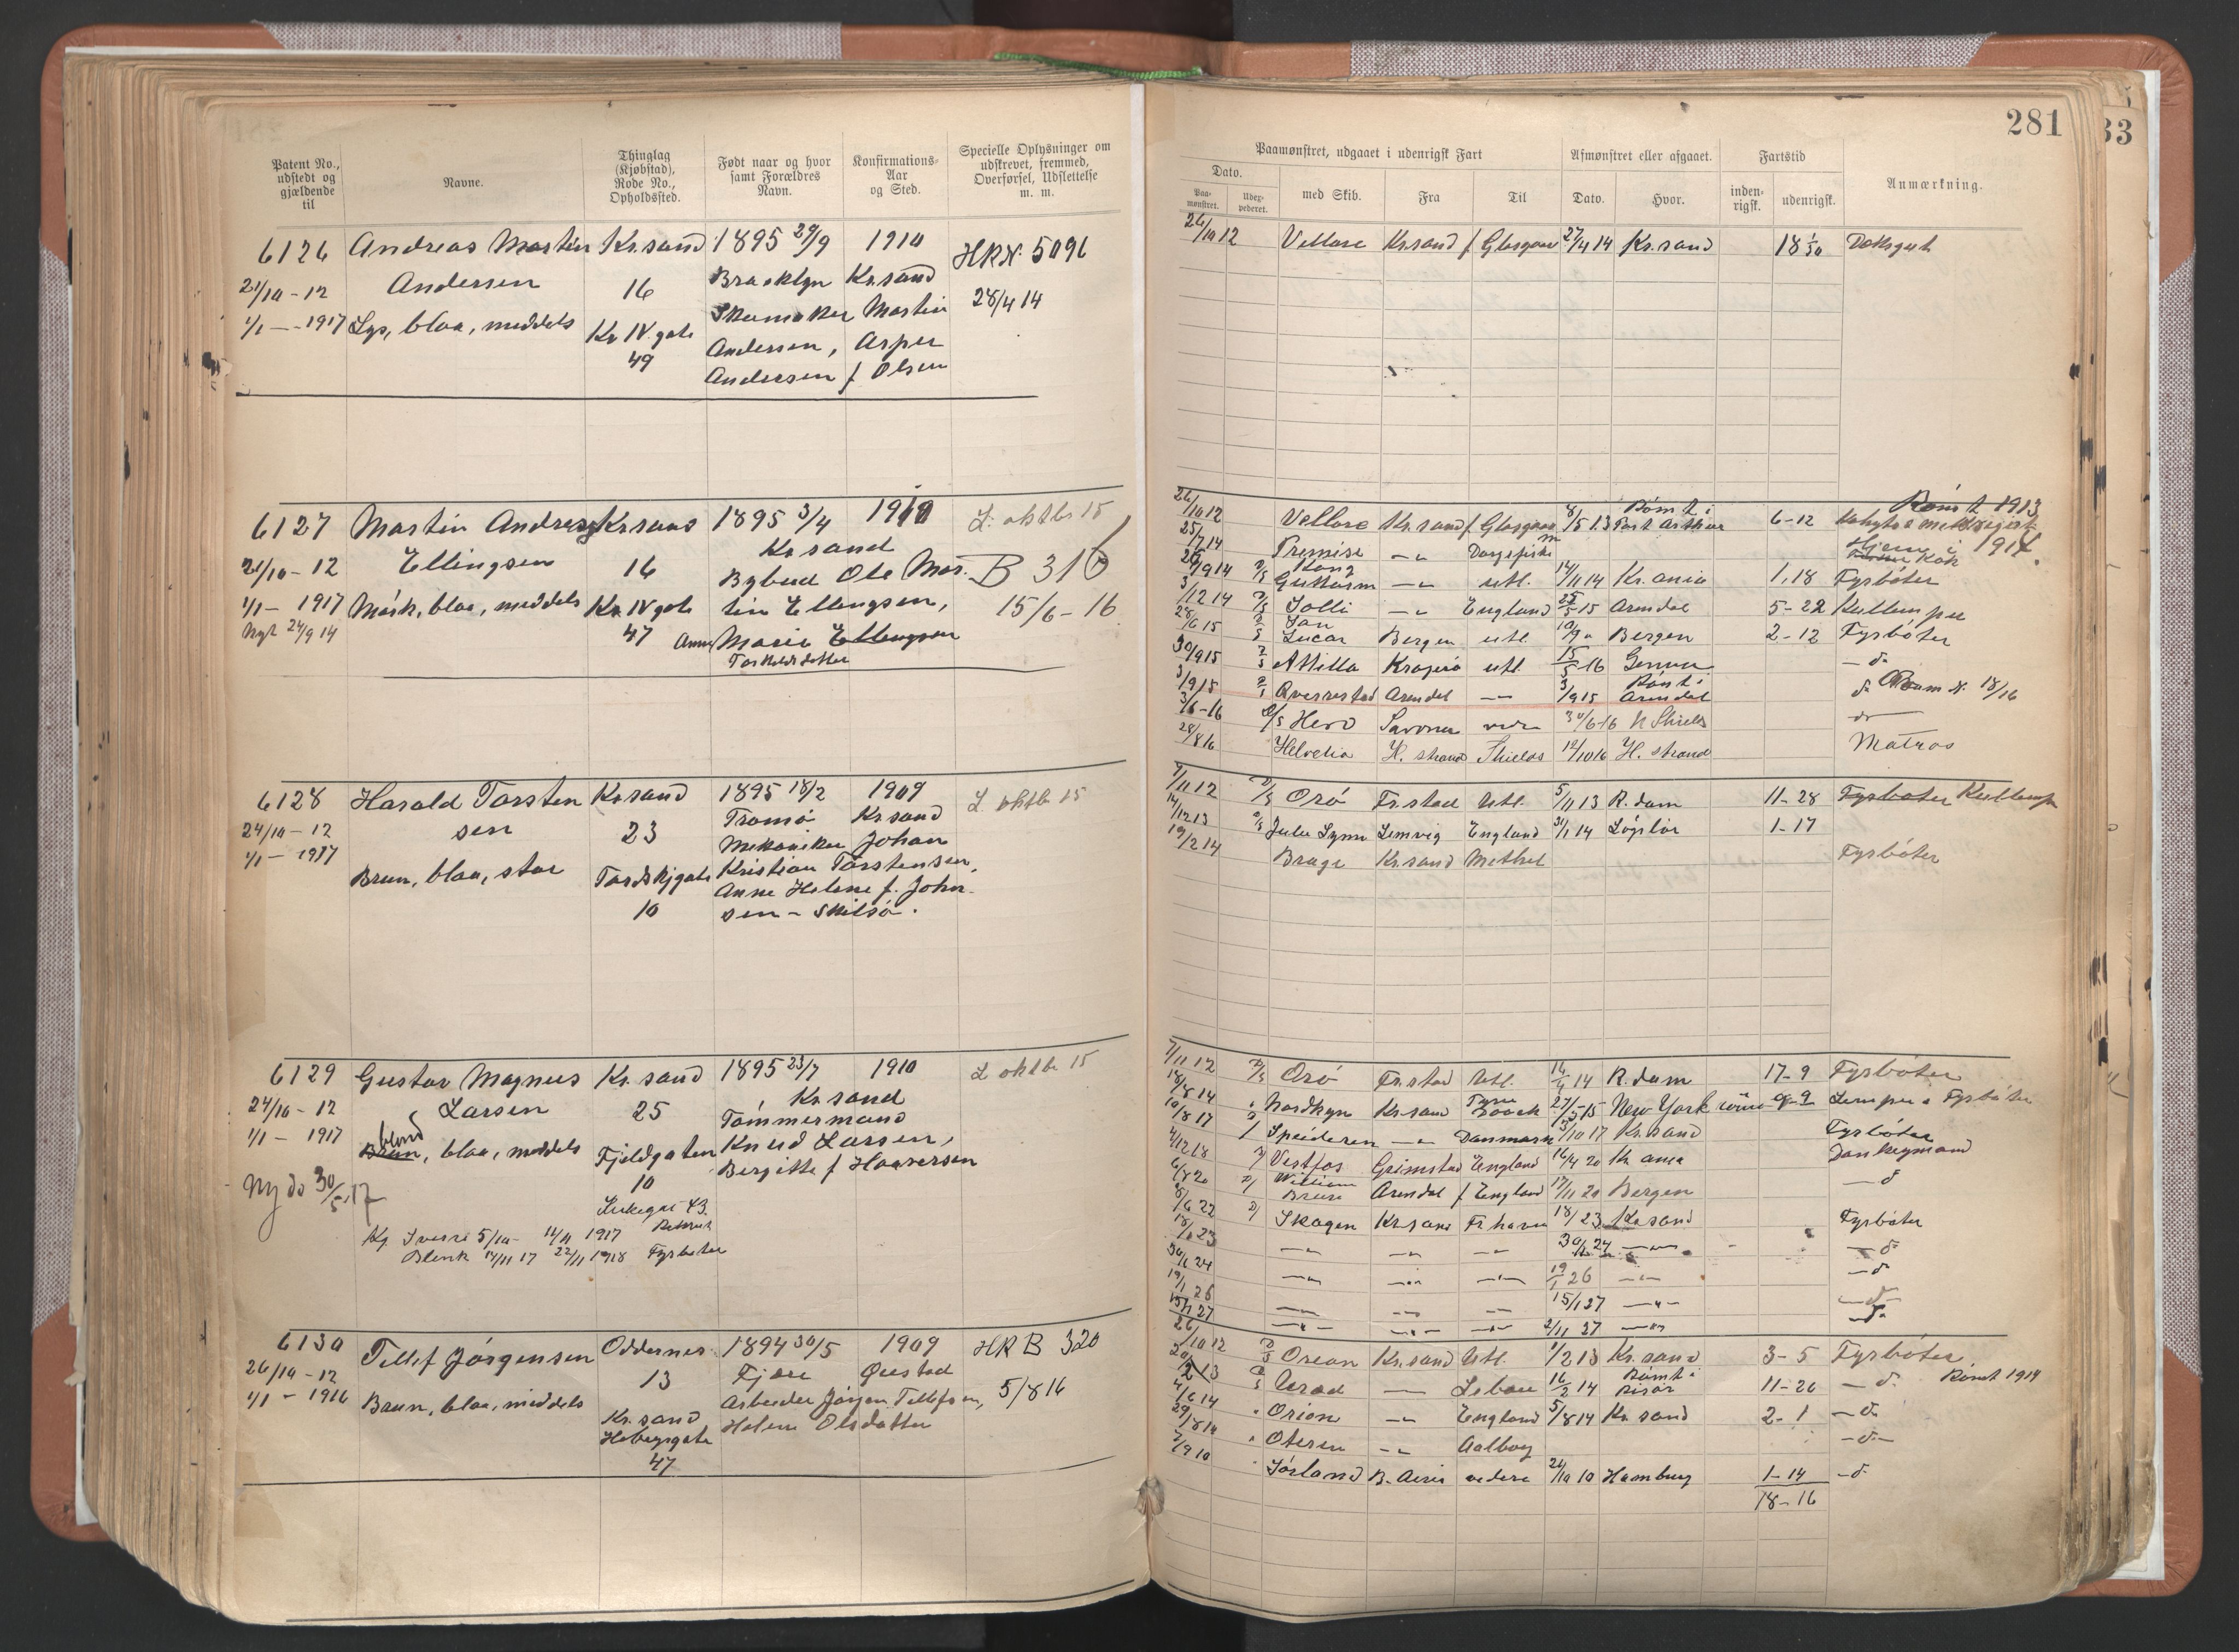 281
33
Patent No., udstedt og gjældende til
Navne.
Thinglag (Kjøbstad), Rode No., Opholdssted.
Født naar og hvor samt Forældres Navn.
Konfirmations-Aar og Sted.
Specielle Oplysninger om udskrevet, fremmed, Overførsel, Udslettelse m. m.
6126 Andreas Martin Kr.sand 1895 29/9 1910 HRN. 5096
21/10 - 12 Andersen 16 Brooklyn Kr.sand 28/4 14
1/1 - 1917 Lys, blaa, middels Kr IV gate Skomaker Martin
49 Andersen, Asper
Andersen f Olsen
6127 Martin Andreas Kr.sand 1895 3/4 1910 L. oktbr 15
21/10 - 12 Ellingsen 16 Kr.sand
Bybud Ole Mar. B 316
1/1 - 1917 Mørk, blaa, middels Kr IV gate tin Ellingsen, 15/6 - 16
Nyt 24/9 14 47 Anne Marie Ellingsen
Torkelsdatter
6128 Harald Torsten Kr.sand 1895 18/2 1909 L. oktbr 15
24/10 - 12 sen 23 Tromø Kr.sand
1/1 - 1917 Mekaniker Johan
Brun, blaa, stor Tordskjgate Kristian Torstensen,
Anne Helene f. John
10 sen - Skilsø.
6129 Gustav Magnus Kr.sand 1895 23/7 1910 L oktbr 15
24/10 - 12 Larsen 25 Kr.sand
1/1 - 1917 blond Tømmermand
Brun, blaa, middels Fjeldgaten Knud Larsen,
Ny do 30/5 17 10 Bergitte f Haaversen
43
5/10 - 1917
Blink 14/11 17 22/11 1918 Fyrbøter
6130 Tellef Jørgensen Oddernes 1894 30/5 1909 HR B 320
26/10 - 12 13 Fjære Øiestad
1/1 - 1916 Brun, blaa, middels Arbeider Jørgen Tellefsen, 5/8 16
Kr.sand Helene Olsdatter
47
Paamønstret, udgaaet i udenrigsk Fart
Afmønstret eller afgaaet.
Fartstid
Anmærkning.
Dato.
Paa-mønstret.
Uder-pederet.
med Skib.
Fra
Til
Dato.
Hvor.
inden-rigsk.
udenrigsk.
26/10 12 Vellore Kr.sand f Glasgow 27/4 14 Kr.sand 18 1/30 Doksgut
Rømt i Rømt 1913
26/10 12 Vellore Kr.sand f Glasgow 8/5 13 Port Arthur 6-12
25/7 14 Premise - " - Kok
Kong
Guttorm - " - utl. 14/11 14 Kr.ania 1,18 Fyrbøter
3/12 14 D/S Solli - " - England 25/5 15 Arendal 5-22 Kullemper
28/6 15 D/S Jan
Lucas Bergen utl Bergen 2-12 Fyrbøter
30/9 15 D/S Attilla Kragerø utl 15/5 16 Genua - d.
3/9 15 Qverrestad Arendal - 3/9 15 Rømt i Arendal d
3/6 - 16 D/S Hero Savona 30/6 - 16 N Shields do
28/8 16 Helvetia H. strand Shields 12/10 16 H. strand Matros
7/11 12 D/S Orø Fr.stad Utl. 5/11 13 R.dam 11-28 Fyrbøter Kullemp
14/12 13 Lynn Lemvig England 31/1 14 Løgstør 1-17
19/2 14 Brage Kr.sand Methel Fyrbøter
7/11 12 D/S Orø Fr.stad Utl. 16/4 14 R.dam 17-9 Fyrbøter
18/8 14 Nordkyn Kr.sand Tyne 27/5 15 New York Lemper & Fyrbøter
10/8 17 Speideren - " - Danmark 3/10 17 Kr.sand Fyrbøter
4/12 18 Vestfos Grimstad England 16/4 20 Kr.ania Donkeymand
6/8 20 William
Arendal f England 17/11 20 Bergen - d
8/6 22 D/ Skagen Kr.sand Fr.havn 18/ 23 Kr.sand Fyrbøter
18/ 23 - " - - " - - " - 30/ 24 - " - - d.
30/ 24 - " - - " - - " - 19/1 26 - " - - d.
19/1 26 - " - - " - - " - 15/1 27 - " - - d -
15/1 27 - " - - " - - " - 2/11 27 - " - - d.
26/10 12 D/S Kr.sand Utl. 1/2 13 Kr.sand 3-5 Fyrbøter
20/2 13 Urad - Lebau 16/2 14 Rømt i Risør 11-26 - d. Rømt 1914
4/6 14 Orion - " - England 5/8 14 Kr.sand 2-1 - d.
29/8 14 Oteren - " - Aalborg - d -
2/9 10 Sørland B. Aires videre 24/10 10 Hamburg 1-14 - d.
18-16